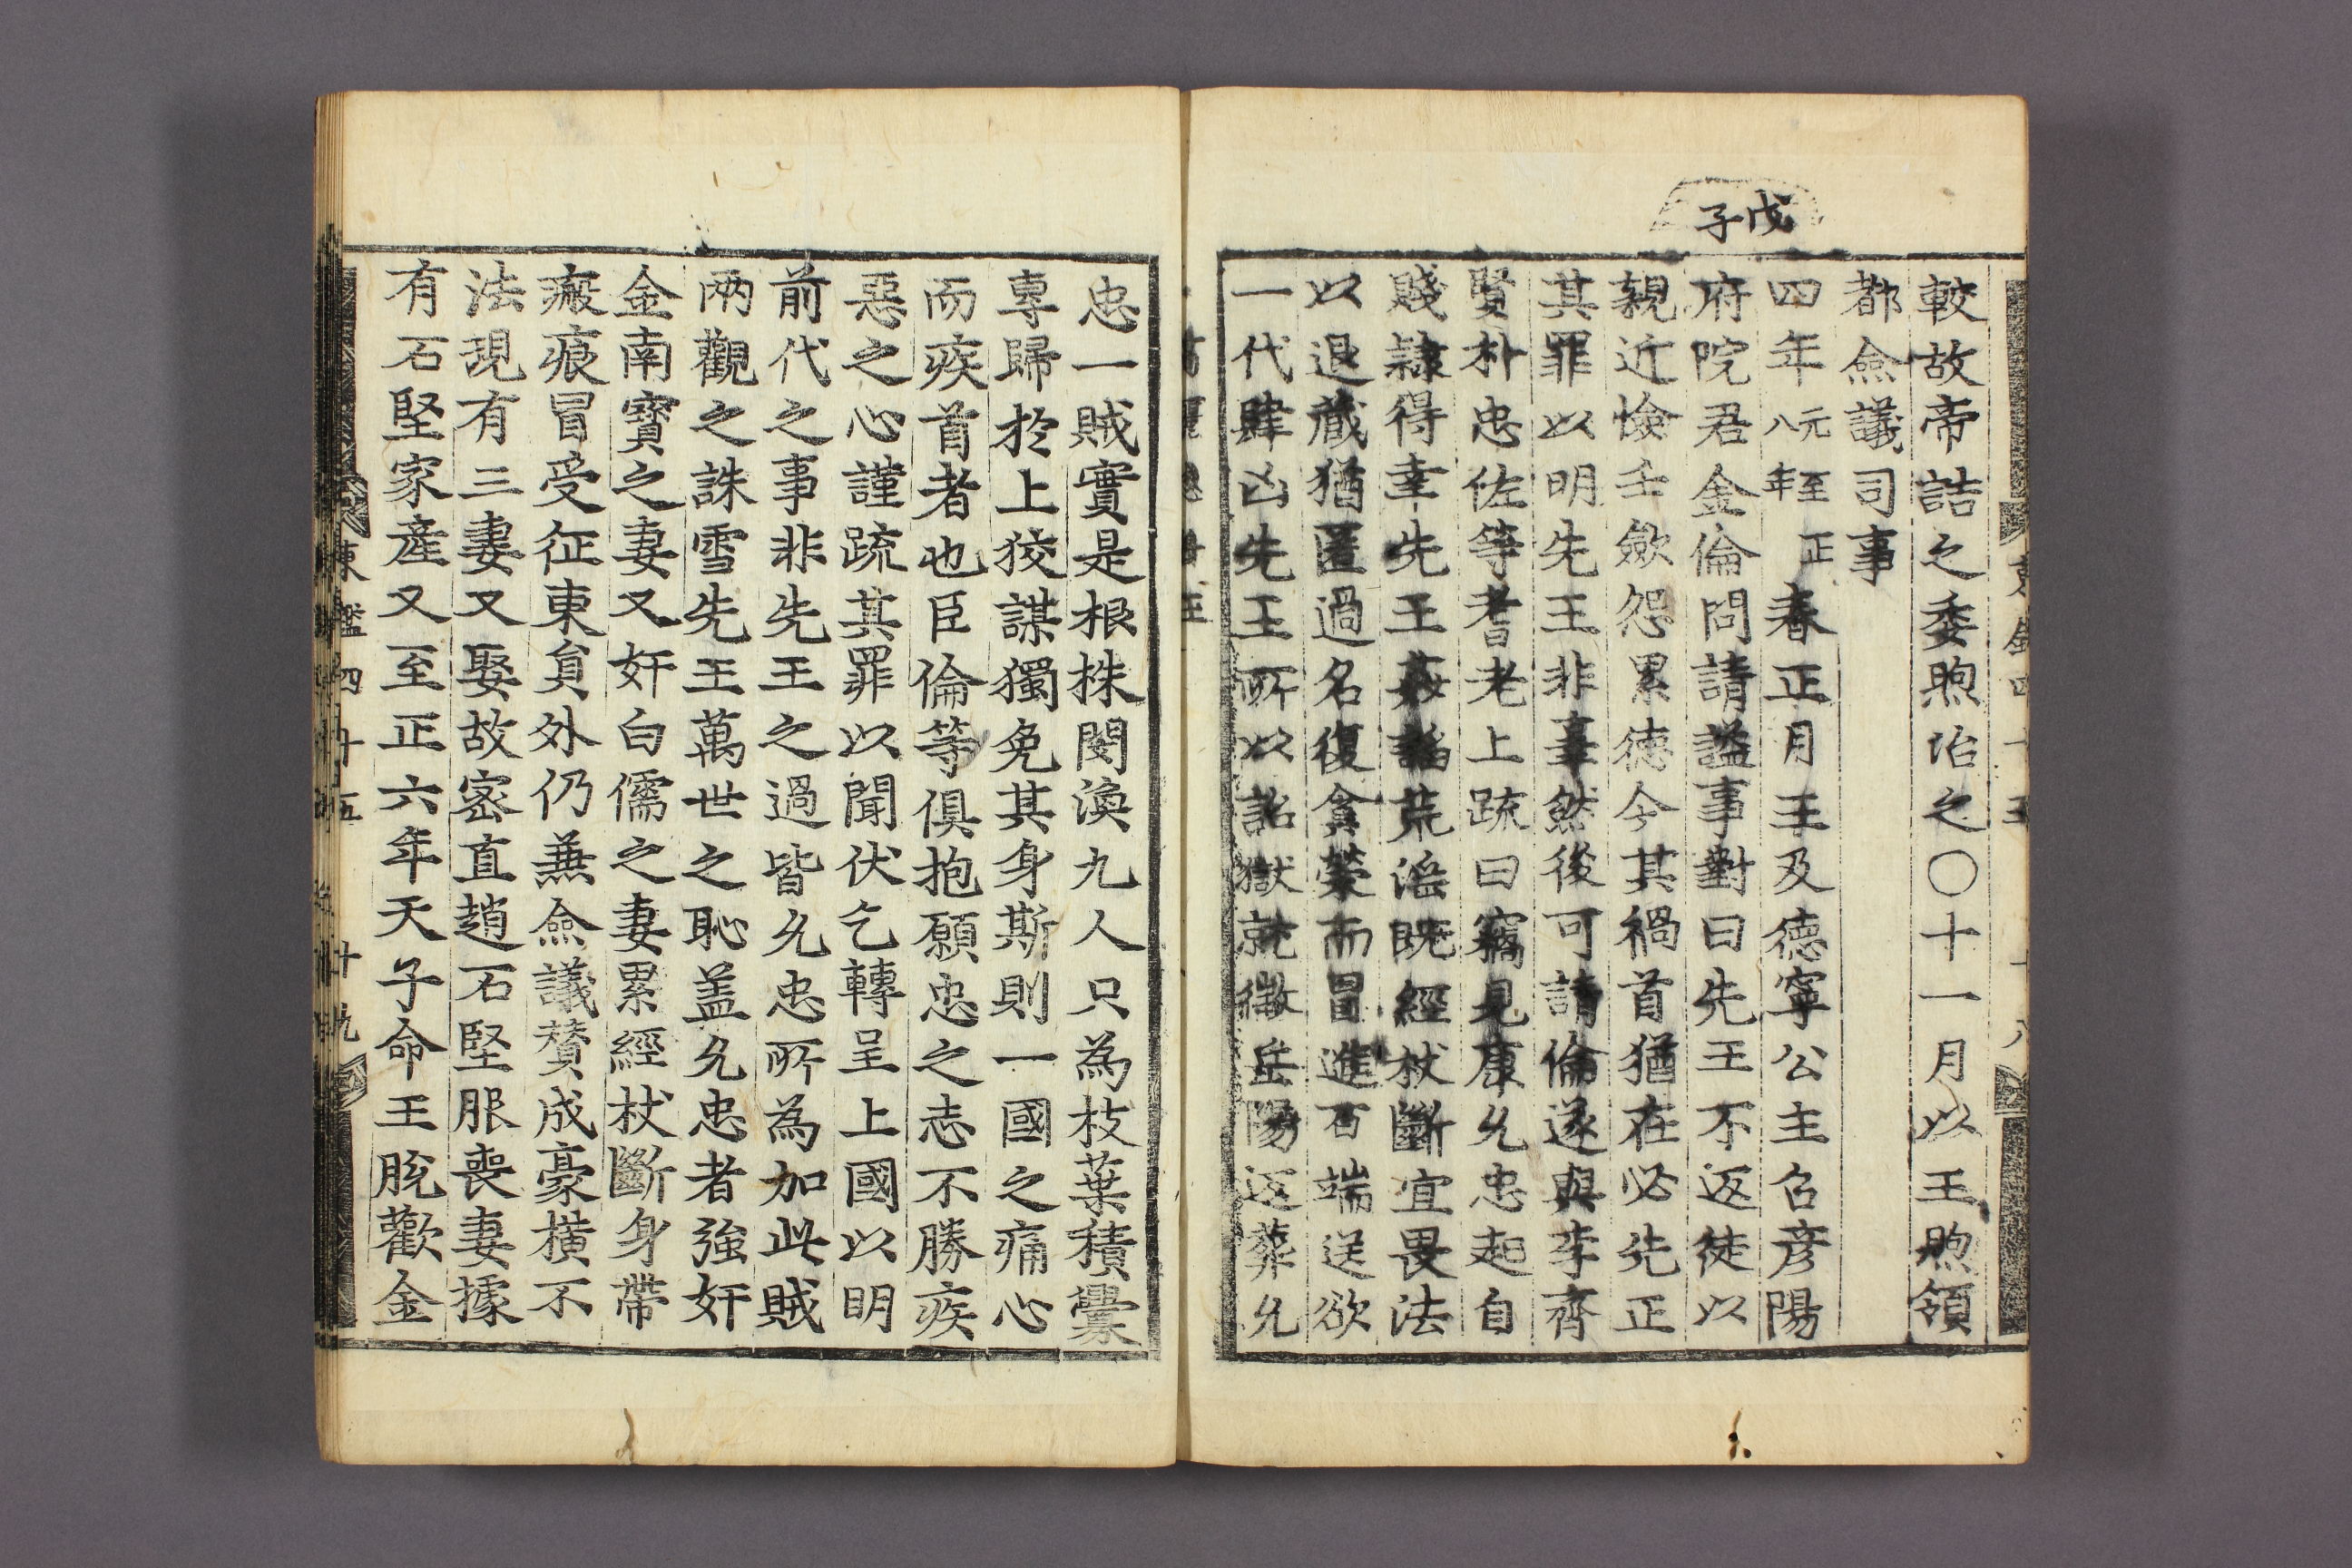 戊子
較故帝詰之委煦治之〇十一月以王煦領
都僉議司事
四年元至正八年春正月王及德寧公主召彦陽
府院君金倫問請謚事對曰先王不返徒以
親近憸壬斂怨累德今其禍首猶在必先正
其罪以明先王非辜然後可請倫遂與李齊
賢朴忠佐等耆老上疏曰竊見康允忠起自
賤隷得幸先王姦謟荒滛既經杖斷宜畏法
以退藏猶匿過名復貪榮而冒進百端送欲
一代肆凶先王所以詔獄就徵岳陽返葬允
忠一賊實是根株閔渙九人只為枝葉積釁
專歸於上狡謀獨免其身斯則一國之痛心
而疾首者也臣倫等俱抱願忠之志不勝疾
惡之心謹疏其罪以聞伏乞轉呈上國以明
前代之事非先王之過皆允忠所為加此賊
兩觀之誅雪先王萬世之恥盖允忠者強奸
金南寶之妻又奸白儒之妻累經杖斷身帶
瘢痕冒受征東負外仍無僉議賛成豪橫不
法現有三妻又娶故密直趙石堅服喪妻據
有石堅家産又至正六年天子命王脫歡金
東鑑四十五 十九